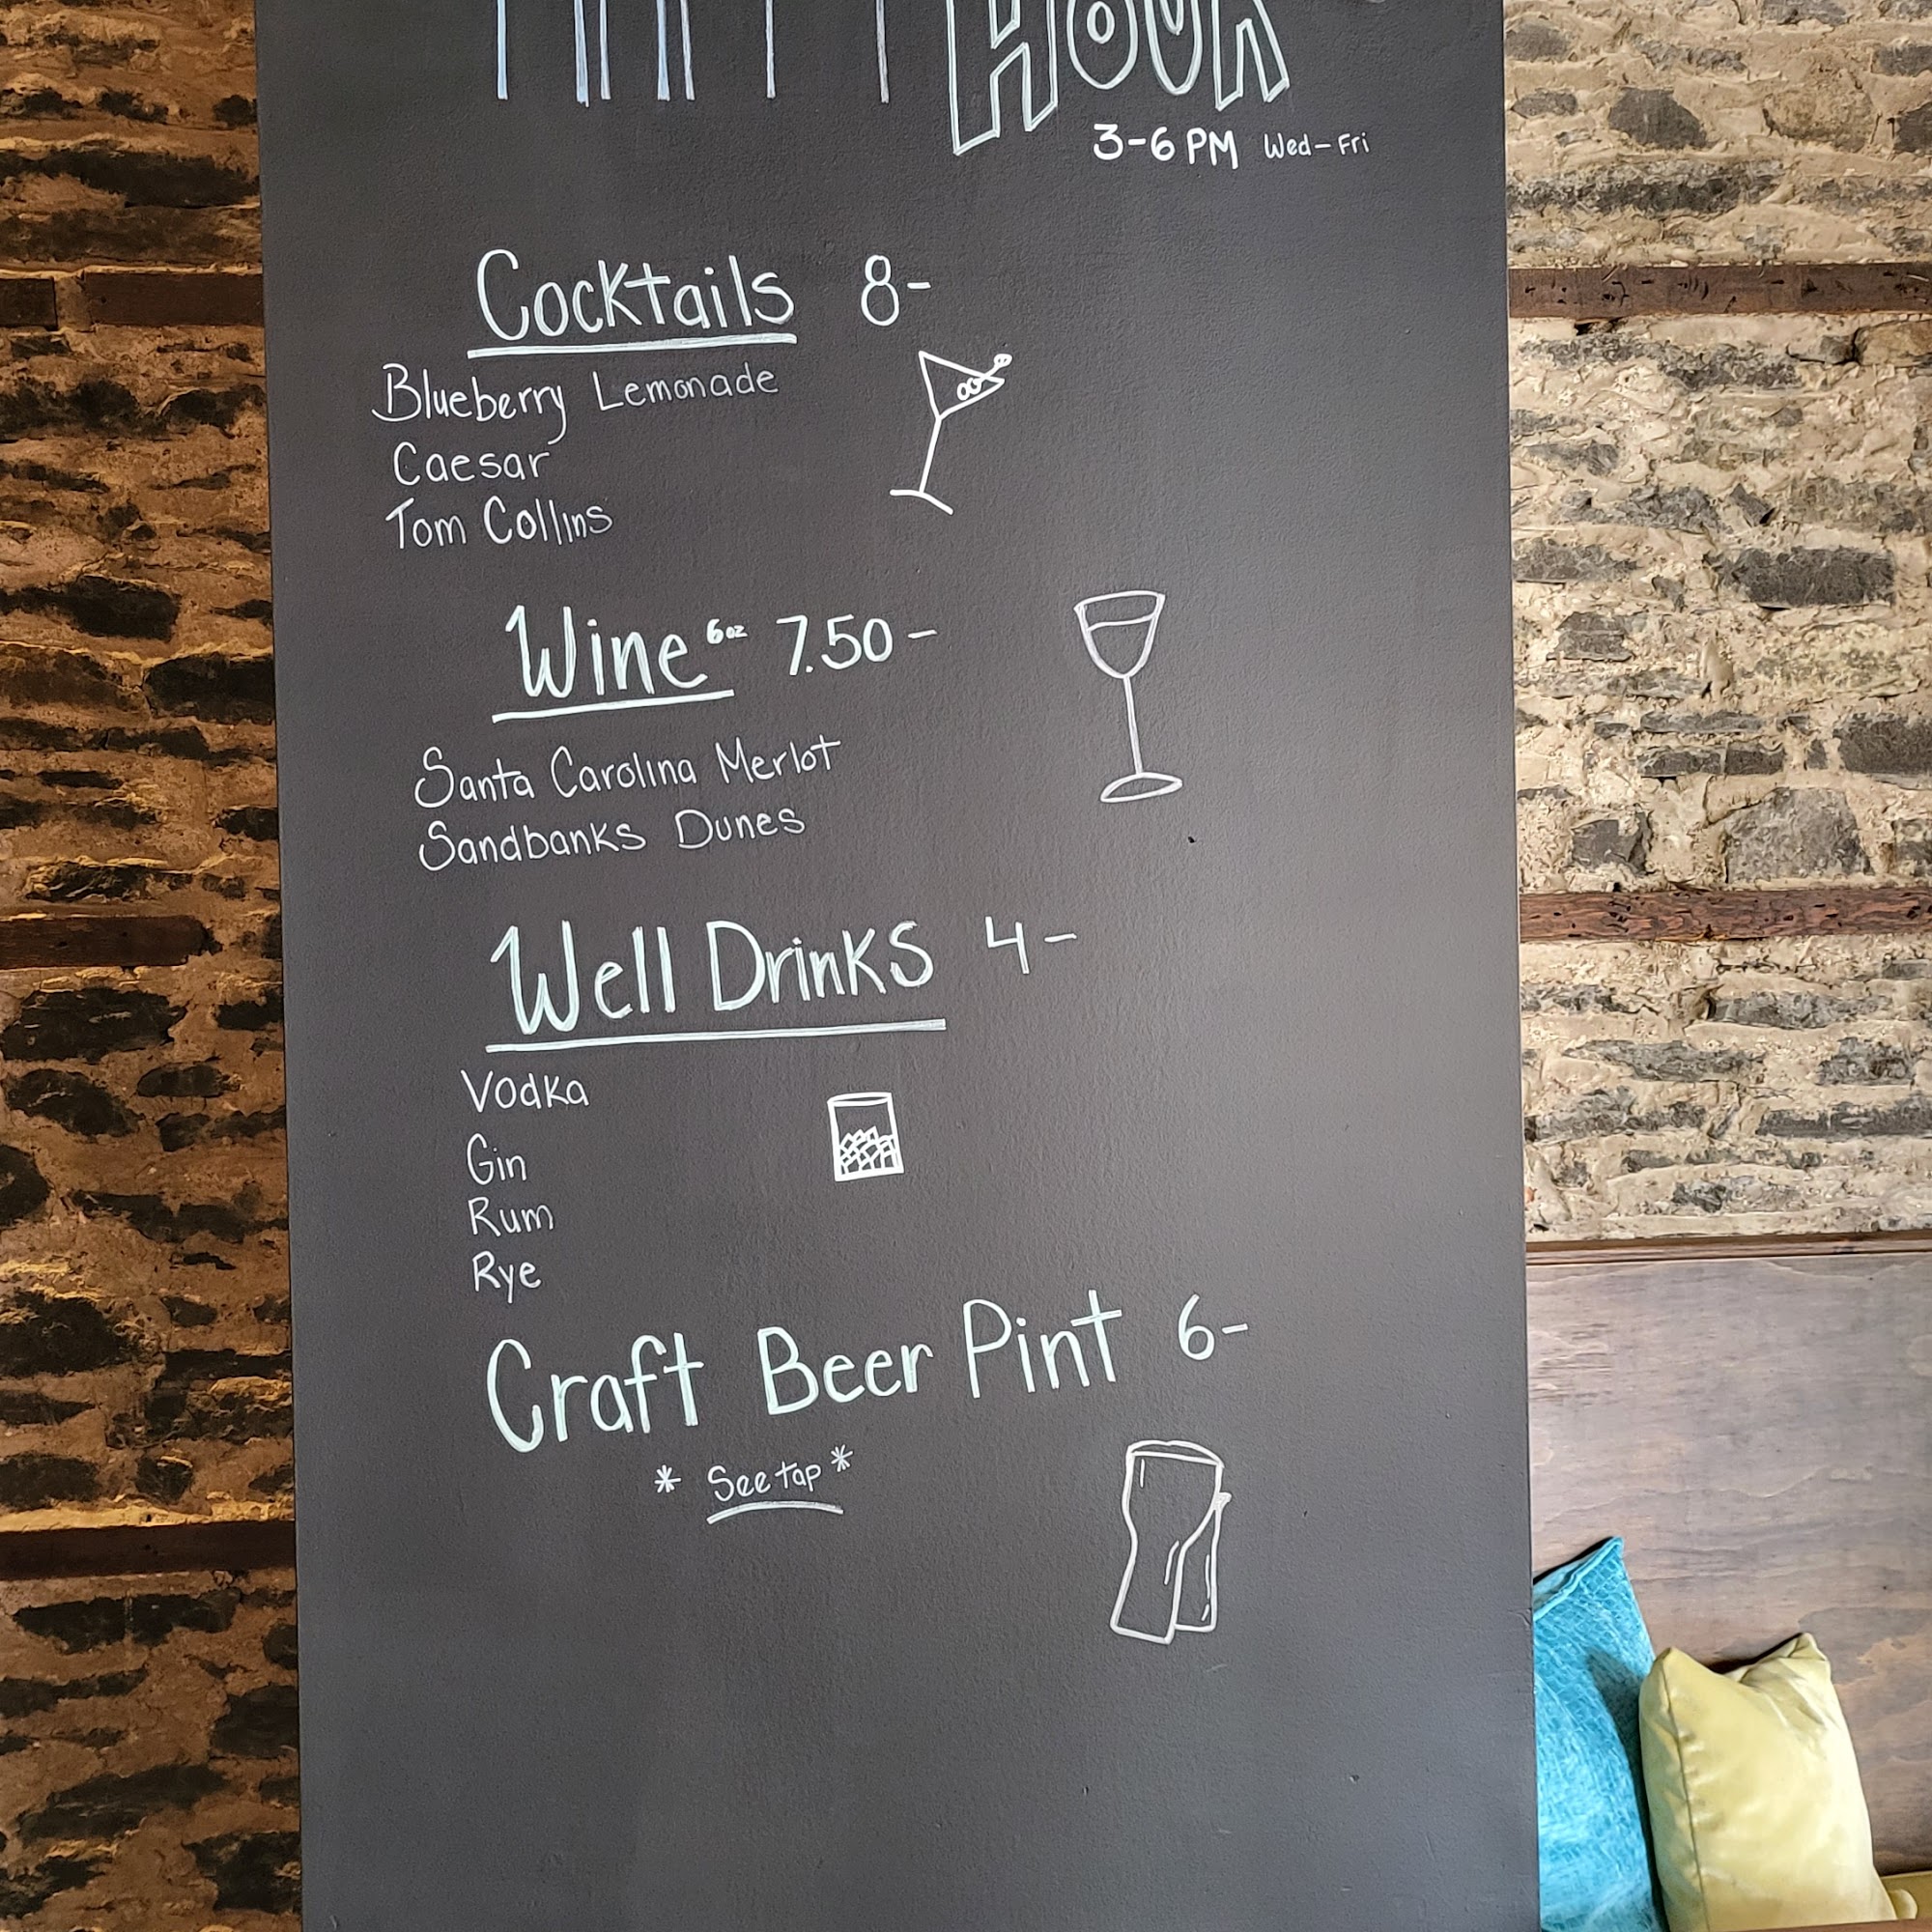 HOUR
3-6 PM Wed-Fri
Cocktails 8-
Blueberry Lemonade
Caesar
Tom Collins
Wine 6oz 7.50-
Santa Carolina Merlot
Sandbanks Dunes
Well Drinks 4-
Vodka
Gin
Rum
Rye
Craft Beer Pint 6-
* See tap *